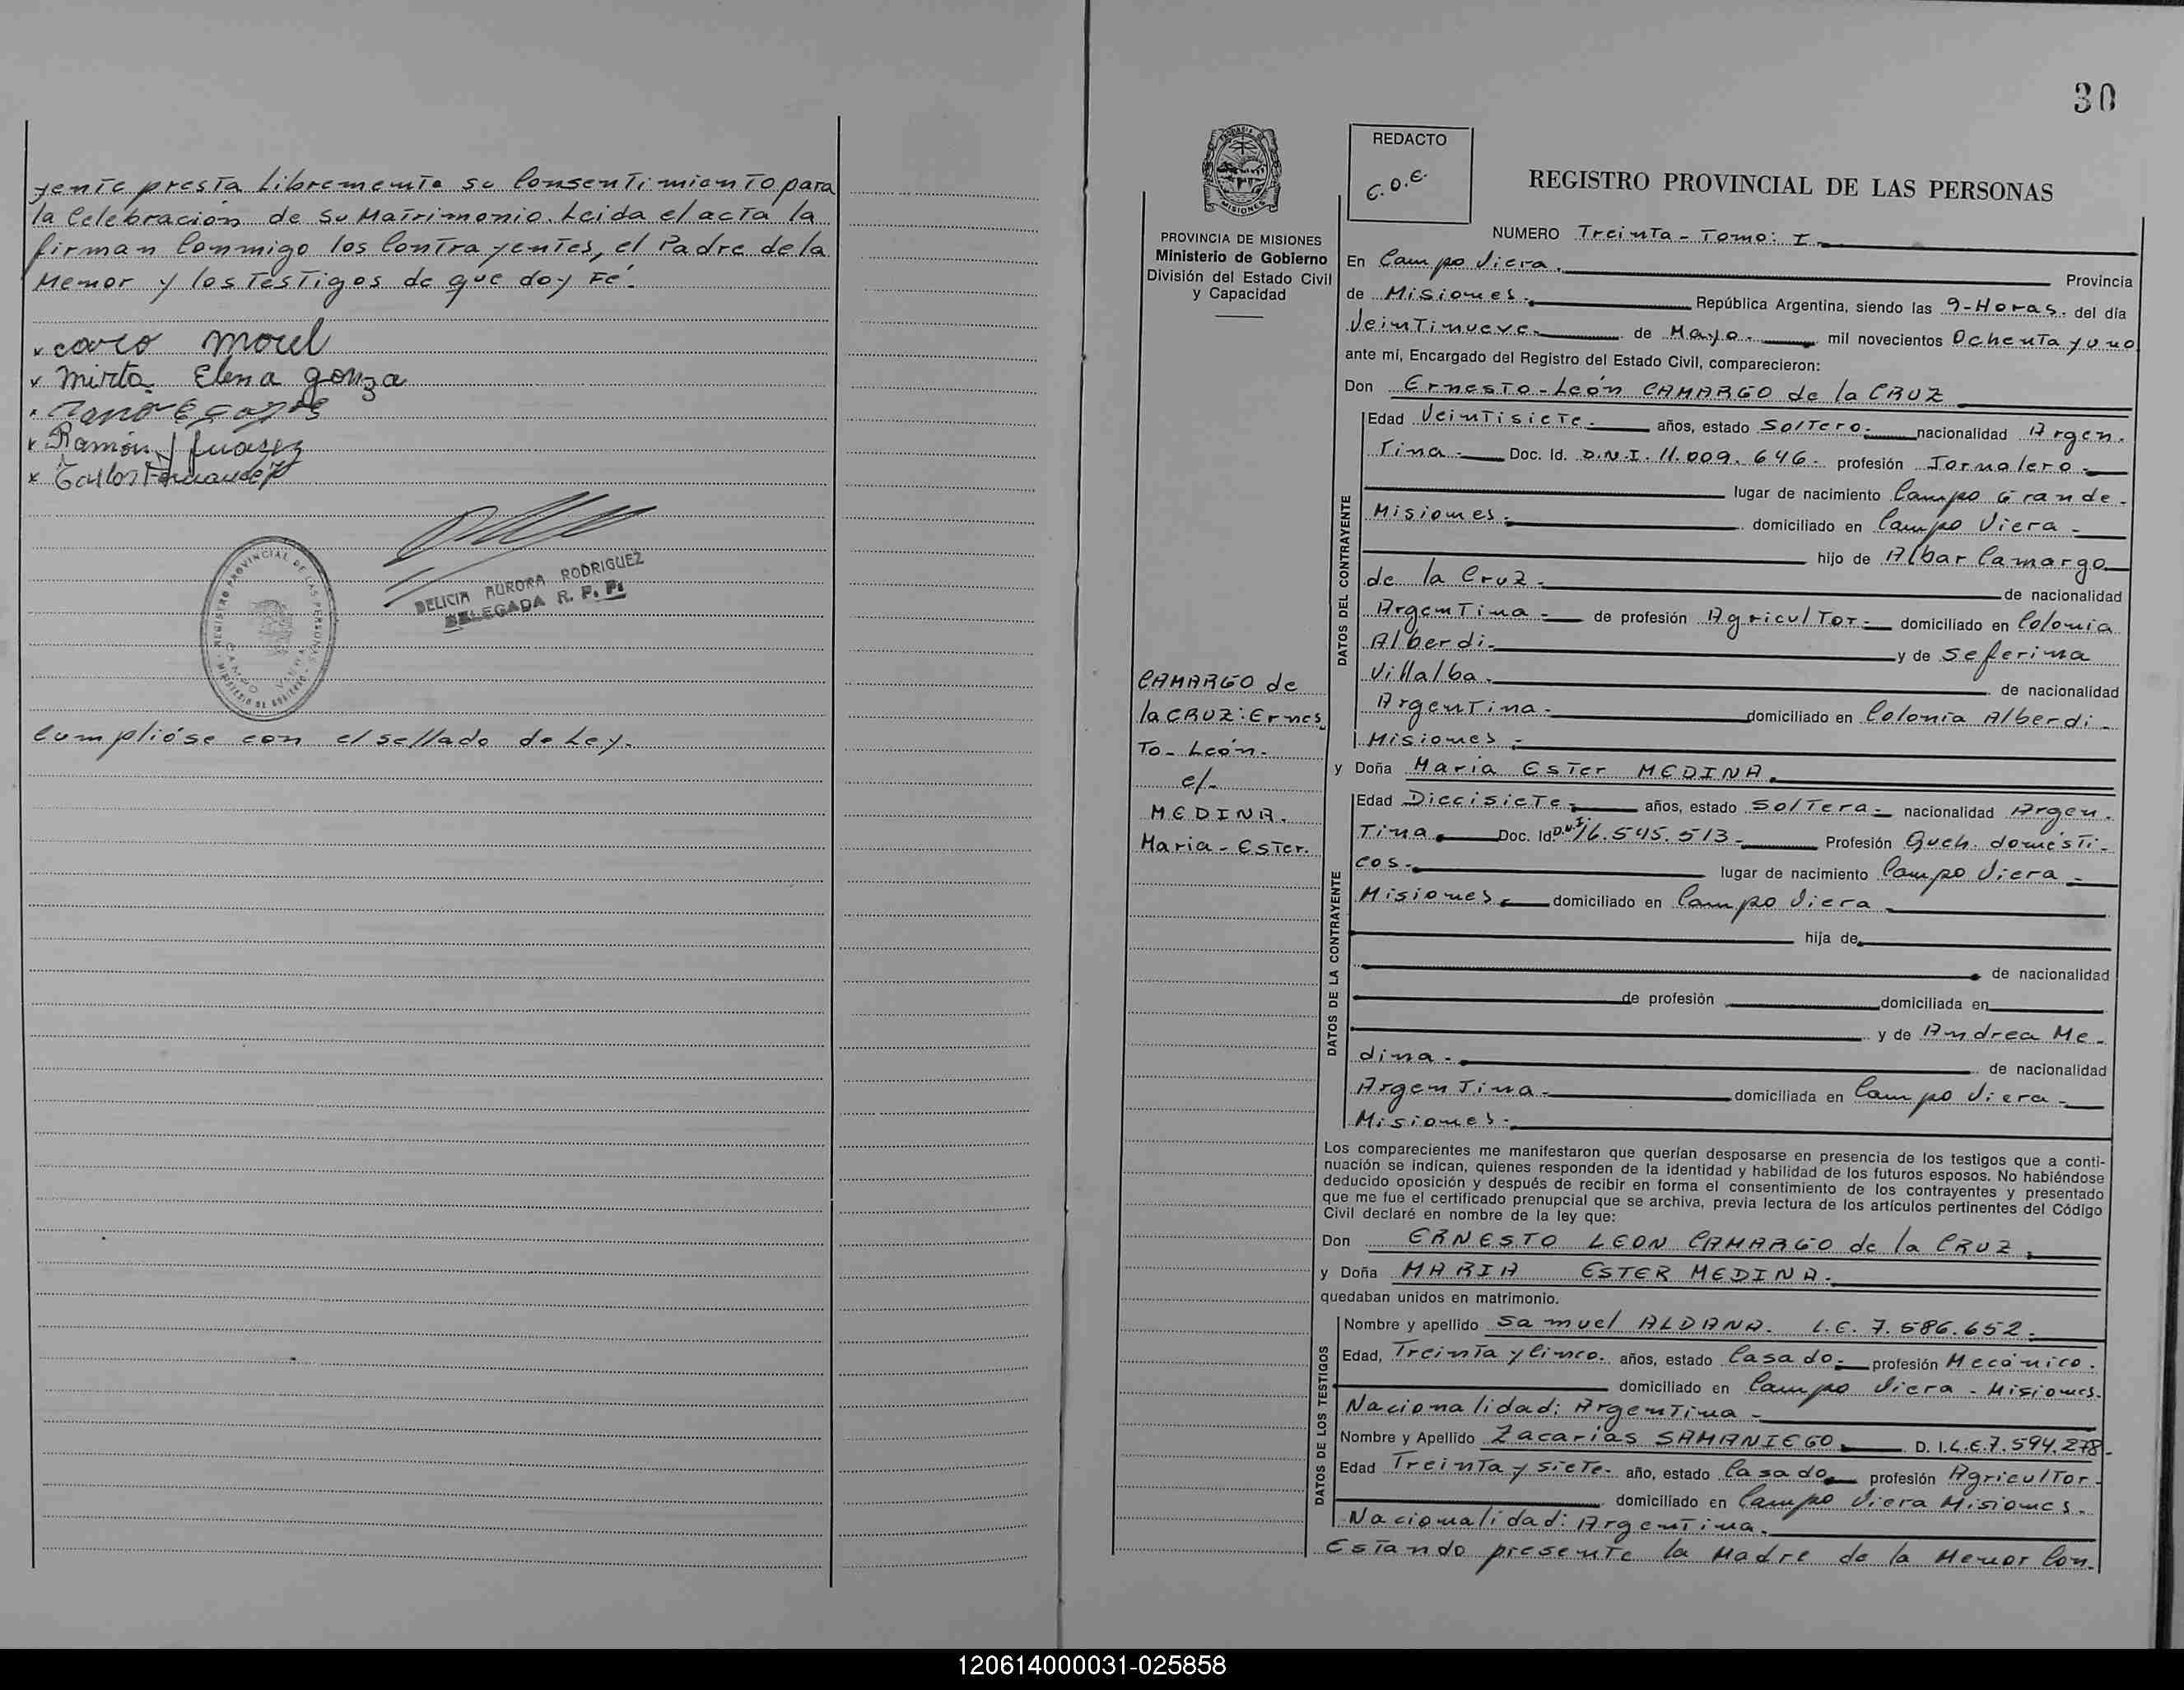 yente presta libremente su Consentimiento para
la Celebración de su Matrimonio. Leida el acta la
firman Conmigo los Contrayentes, el Padre de la
Menor y los Testigos de que doy Fé.
morel
Mirta Elena gonza
Ramón J Juarez
Carlos Fernandez
DELICIA AURORA RODRIGUEZ
DELEGADA R. P. P.
REGISTRO PROVINCIAL DE LAS PERSONAS
MINISTERIO DE GOBIERNO
CAMPO VIERA
Cumplióse con el sellado de Ley.
30
MISIONES
PROVINCIA DE MISIONES
Ministerio de Gobierno
División del Estado Civil
y Capacidad
CAMARGO de
la CRUZ: Ernes
To - León.
c/.
MEDINA.
Maria - Ester.
REDACTO
C.O.E.
REGISTRO PROVINCIAL DE LAS PERSONAS
NUMERO Treinta - Tomo: I.
En Campo Viera. Provincia
de Misiones. República Argentina, siendo las 9-Horas. del día
Veintinueve. de Mayo. mil novecientos Ochenta y uno
ante mí, Encargado del Registro del Estado Civil, comparecieron:
Don Ernesto - León CAMARGO de la CRUZ
DATOS DEL CONTRAYENTE
Edad Veintisiete. años, estado Soltero. nacionalidad Argen.
Tina. Doc. Id. D.N.I. 11.009.646. profesión Jornalero.
lugar de nacimiento Campo Grande.
Misiones. domiciliado en Campo Viera.
hijo de Albar Camargo
de la Cruz. de nacionalidad
Argentina. de profesión Agricultor. domiciliado en Colonia
Alberdi. y de Seferina
Villalba. de nacionalidad
Argentina. domiciliado en Colonia Alberdi.
Misiones.
y Doña Maria Ester MEDINA.
DATOS DE LA CONTRAYENTE
Edad Diecisiete. años, estado Soltera. nacionalidad Argen.
Tina. Doc. Id. D.N.I. 16.545.513. Profesión Queh. domésti-
cos. lugar de nacimiento Campo Viera
Misiones. domiciliado en Campo Viera
hija de
de nacionalidad
de profesión domiciliada en
y de Andrea Me-
dina. de nacionalidad
Argentina. domiciliada en Campo Viera.
Misiones.
Los comparecientes me manifestaron que querían desposarse en presencia de los testigos que a conti-
nuación se indican, quienes responden de la identidad y habilidad de los futuros esposos. No habiéndose
deducido oposición y después de recibir en forma el consentimiento de los contrayentes y presentado
que me fue el certificado prenupcial que se archiva, previa lectura de los artículos pertinentes del Código
Civil declaré en nombre de la ley que:
Don ERNESTO LEON CAMARGO de la CRUZ
y Doña MARIA ESTER MEDINA.
quedaban unidos en matrimonio.
DATOS DE LOS TESTIGOS
Nombre y apellido Samuel ALDANA. L.E. 7.586.652.
Edad, Treinta y Cinco. años, estado Casado. profesión Mecánico.
domiciliado en Campo Viera - Misiones.
Nacionalidad: Argentina.
Nombre y Apellido Zacarias SAMANIEGO D. I. L.E. 7.594.278.
Edad Treinta y siete. año, estado Casado profesión Agricultor.
domiciliado en Campo Viera Misiones.
Nacionalidad: Argentina.
Estando presente la Madre de la Menor Con.
120614000031-025858